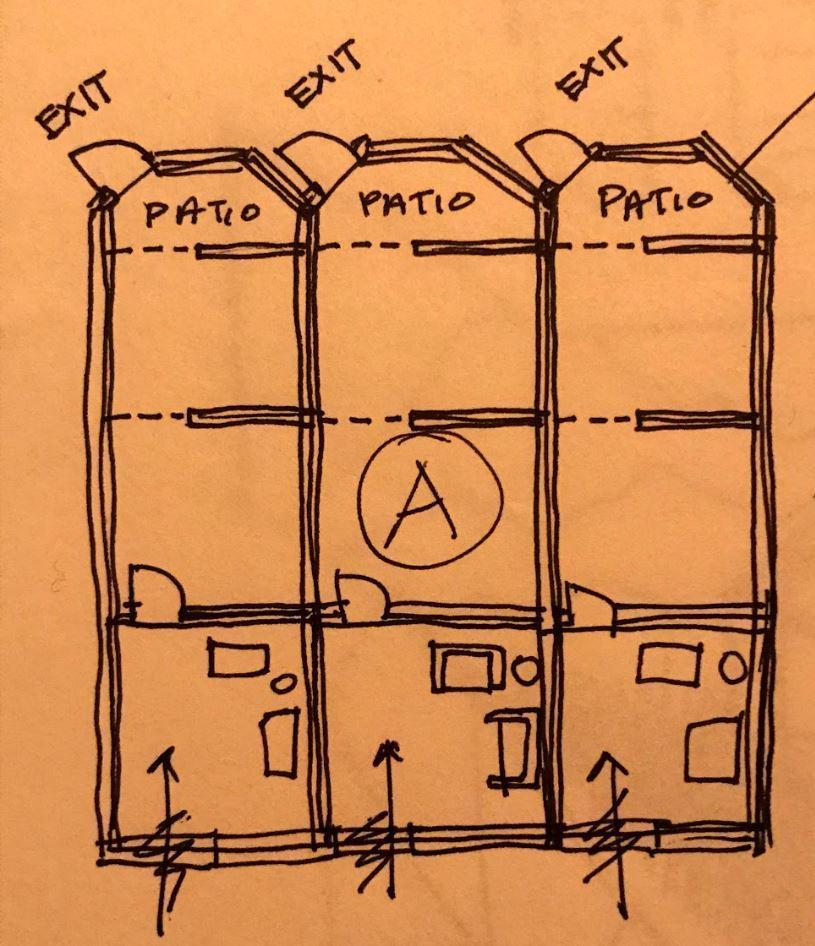 EXIT
EXIT
EXIT
PATIO
PATIO
PATIO
A